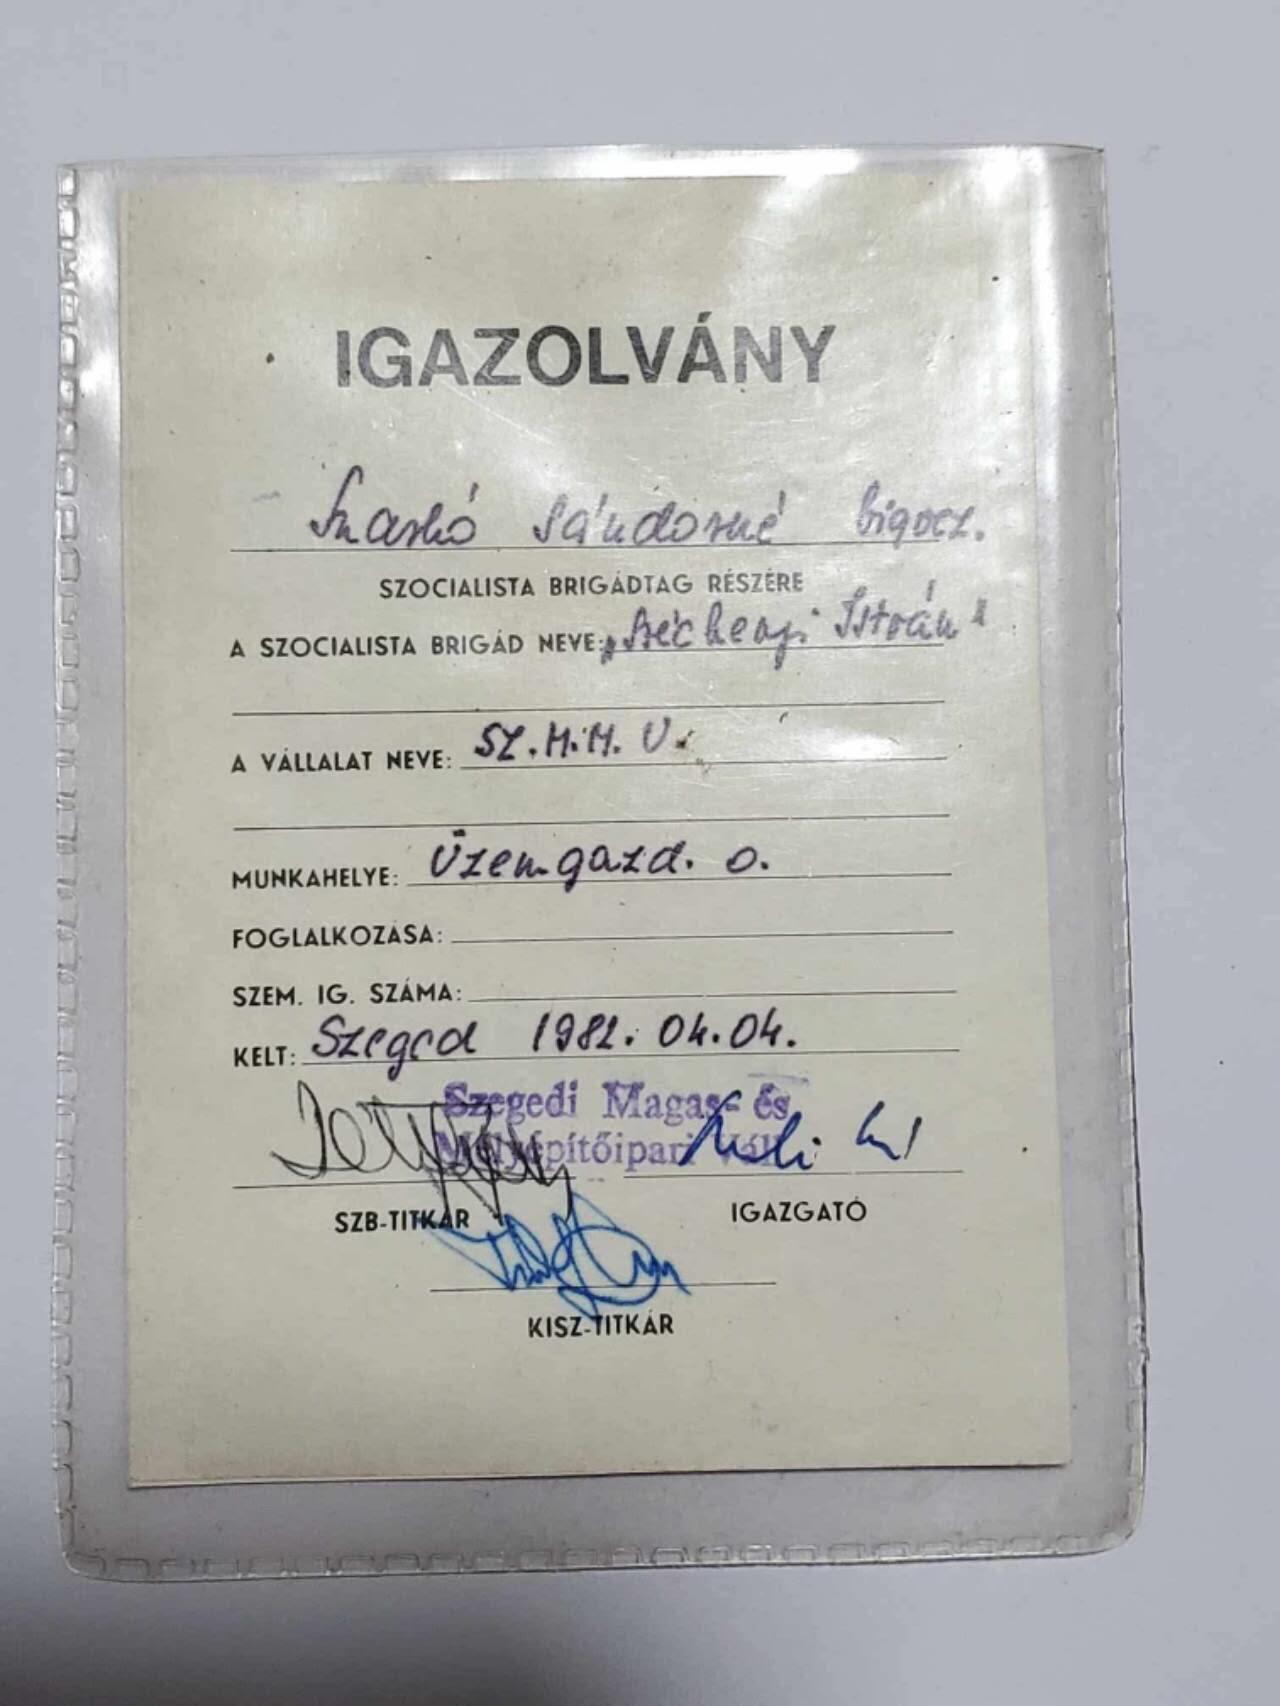 IGAZOLVÁNY
Sándorné brigvez.
SZOCIALISTA BRIGÁDTAG RÉSZÉRE
A SZOCIALISTA BRIGÁD NEVE: „Széchenyi István"
A VÁLLALAT NEVE: SZ.M.M.V.
MUNKAHELYE: Üzemgazd. o.
FOGLALKOZÁSA:
SZEM. IG. SZÁMA:
KELT: Szeged 1982. 04.04.
Szegedi Magas- és
Mélyépítőipari Váll.
SZB-TITKÁR IGAZGATÓ
KISZ-TITKÁR